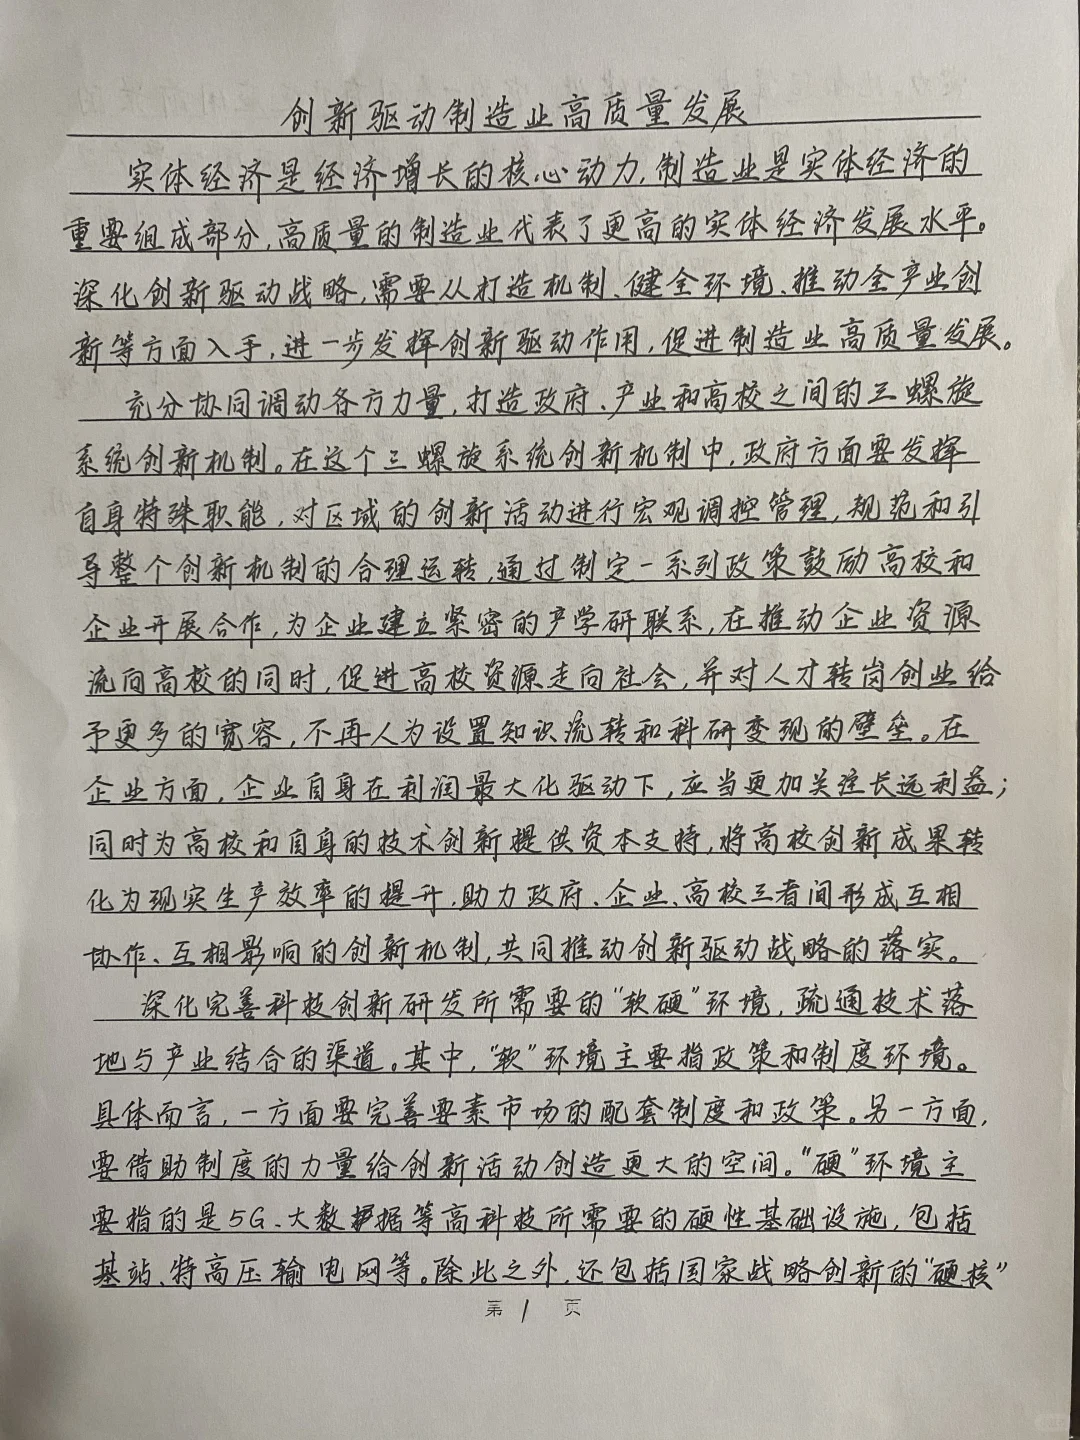 创新驱动制造业高质量发展
实体经济是经济增长的核心动力,制造业是实体经济的
重要组成部分,高质量的制造业代表了更高的实体经济发展水平。
深化创新驱动战略,需要从打造机制、健全环境、推动全产业创
新等方面入手,进一步发挥创新驱动作用,促进制造业高质量发展。
充分协同调动各方力量,打造政府、产业和高校之间的三螺旋
系统创新机制。在这个三螺旋系统创新机制中,政府方面要发挥
自身特殊职能,对区域的创新活动进行宏观调控管理,规范和引
导整个创新机制的合理运转,通过制定一系列政策鼓励高校和
企业开展合作,为企业建立紧密的产学研联系,在推动企业资源
流向高校的同时,促进高校资源走向社会,并对人才转岗创业给
予更多的宽容,不再人为设置知识流转和科研变现的壁垒。在
企业方面,企业自身在利润最大化驱动下,应当更加关注长远利益;
同时为高校和自身的技术创新提供资本支持,将高校创新成果转
化为现实生产效率的提升,助力政府、企业、高校三者间形成互相
协作、互相影响的创新机制,共同推动创新驱动战略的落实。
深化完善科技创新研发所需要的“软硬”环境,疏通技术落
地与产业结合的渠道。其中,“软”环境主要指政策和制度环境。
具体而言,一方面要完善要素市场的配套制度和政策。另一方面,
要借助制度的力量给创新活动创造更大的空间。“硬”环境主
要指的是5G、大数据等高科技所需要的硬性基础设施,包括
基站、特高压输电网等。除此之外,还包括国家战略创新的“硬核”
第1页